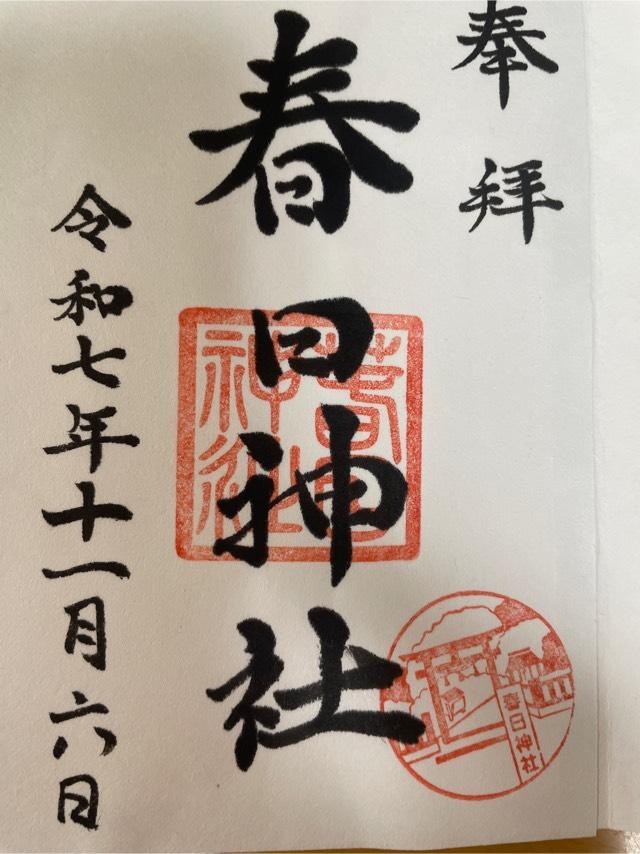 奉拝
春日神社
令和七年十一月六日
春日神社